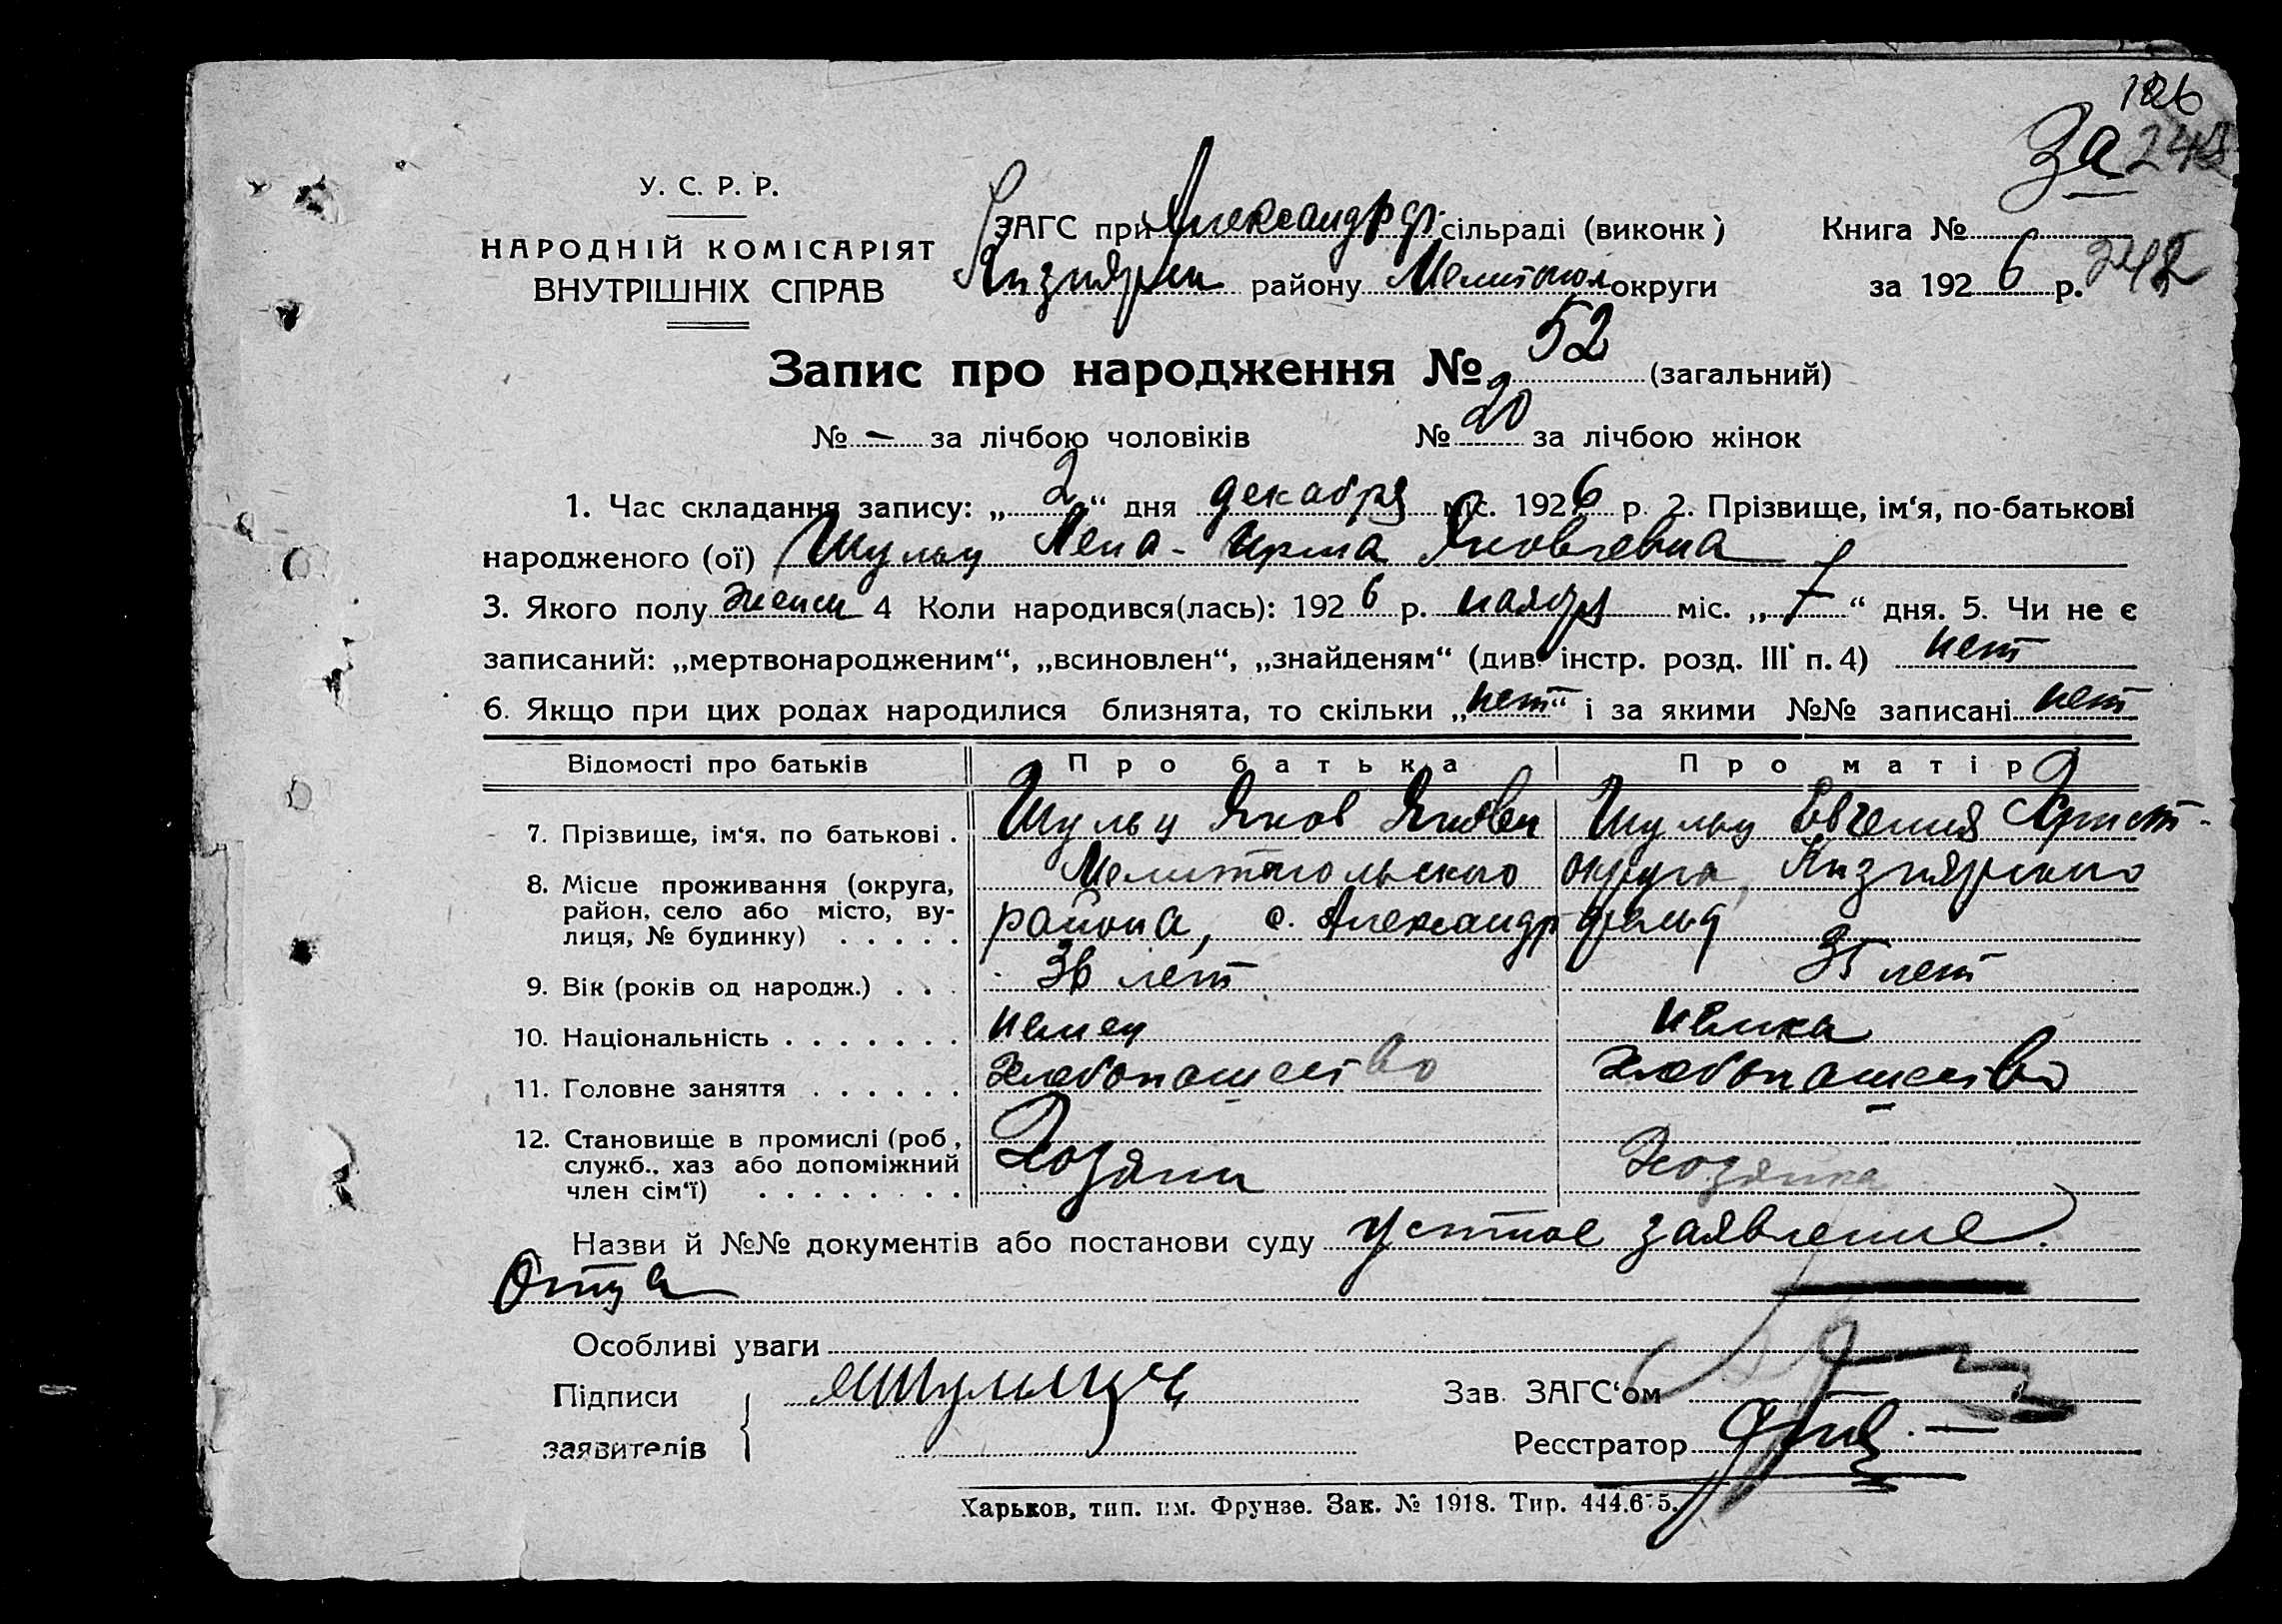 126
За 242
У. С. Р. Р.
НАРОДНІЙ КОМІСАРІЯТ
ВНУТРІШНІХ СПРАВ
ЗАГС при Александрф. сільраді (виконк)
Книга №
района Мелитопол округи
за 1926 р. 242
Запис про народження № 52 (загальний)
№ – за лічбою чоловіків № 20 за лічбою жінок
1. Час складання запису: „2“ дня декабря міс. 1926 р. 2. Прізвище, ім‘я, по-батькові
народженого (ої) Шульц Лена-Ирма Яковлевна
3. Якого полу женск 4 Коли народився(лась): 1926 р. ноября міс. „7“ дня. 5. Чи не є
записаний: „мертвонародженим“, „всиновлен“, „знайденям“ (див. інстр. розд. III п. 4) нет
6. Якщо при цих родах народилися близнята, то скільки „нет“ і за якими №№ записані нет
Відомості про батьків Про батька Про матір
7. Прізвище, ім‘я, по батькові . Шульц Яков Яковл Шульц Евгения Христ-
8. Місце проживання (округа, Мелитопольского округа, Кизиярского
район, село або місто, ву- района, с. Александрфельд
лиця, № будинку) . . . . .
9. Вік (років од народж.) . . . 36 лет 35 лет
10. Національність . . . . . . . немец немка
11. Головне заняття . . . . . . Хлебопашество Хлебопашество
12. Становище в промислі (роб.,
служб., хаз або допоміжний Хозяин Хозяйка
член сім‘ї) . . . . . . . .
Назви й №№ документів або постанови суду Устное заявление
Отца
Особливі уваги
Підписи Зав. ЗАГС‘ом
заявителів Ресстратор
Харьков, тип. им. Фрунзе. Зак. № 1918. Тир. 444.675.